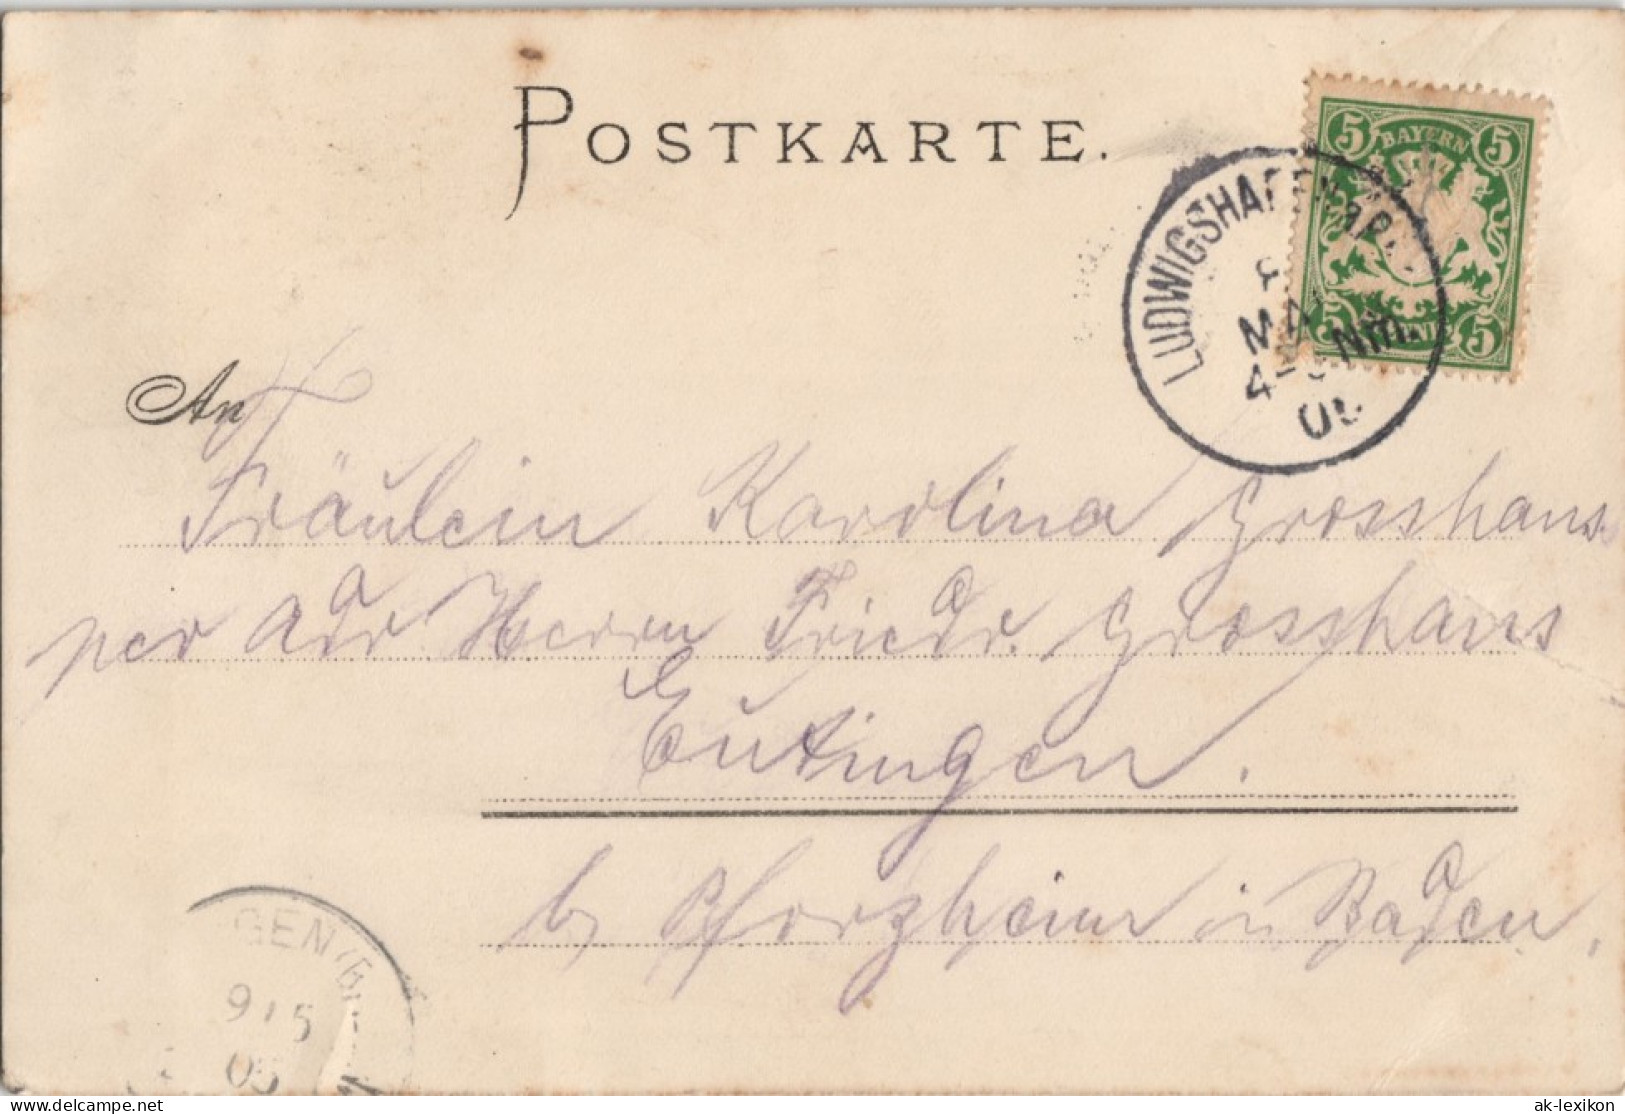 POSTKARTE.
5 BAYERN 5
LUDWIGSHAFEN
MAI
4-5 Nm.
An
Fräulein Karolina Grosshans
per Adr Herrn Friedr. Grosshans
Eutingen.
b/ Pforzheim in Baden,
GEN
9 5
05
delcampe.net
ak-lexikon